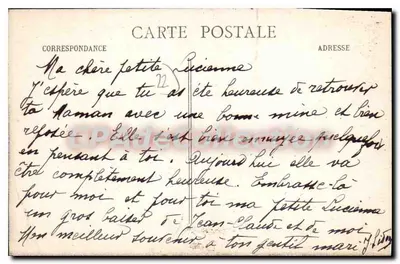 CARTE POSTALE
CORRESPONDANCE
ADRESSE
Ma chère petite Lucienne
22
J'espère que tu as été heureuse de retrouver
ta Maman avec une bonne mine et bien
reposée. Elle s'est bien ennuyée quelquefois
en pensant à toi. Aujourd'hui elle va
être complètement heureuse. Embrasse-la
pour moi et pour toi ma petite Lucienne
un gros baiser de Jean-Claude et de moi
Mon meilleur souvenir à ton gentil mari